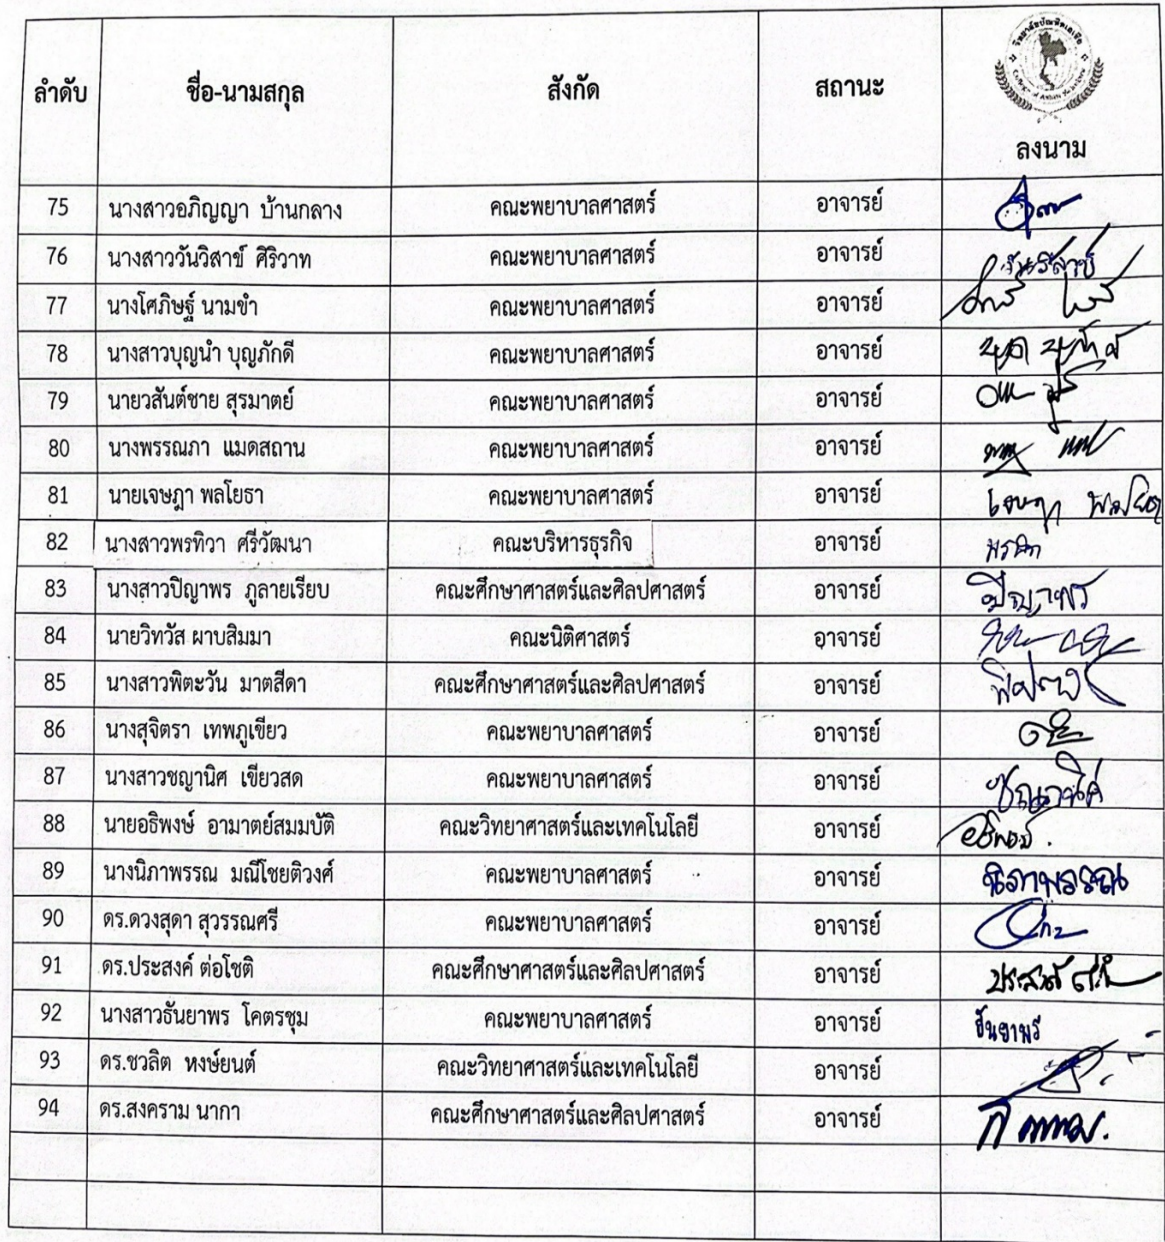 วิทยาลัยบัณฑิตเอเซีย
ลำดับ ชื่อ-นามสกุล สังกัด สถานะ ลงนาม
75 นางสาวอภิญญา บ้านกลาง คณะพยาบาลศาสตร์ อาจารย์
76 นางสาววันวิสาข์ ศิริวาท คณะพยาบาลศาสตร์ อาจารย์ วันวิสาข์
77 นางโศภิษฐ์ นามขำ คณะพยาบาลศาสตร์ อาจารย์
78 นางสาวบุญนำ บุญภักดี คณะพยาบาลศาสตร์ อาจารย์
79 นายวสันต์ชาย สุรมาตย์ คณะพยาบาลศาสตร์ อาจารย์
80 นางพรรณภา แมดสถาน คณะพยาบาลศาสตร์ อาจารย์
81 นายเจษฎา พลโยธา คณะพยาบาลศาสตร์ อาจารย์ เจษฎา
82 นางสาวพรทิวา ศรีวัฒนา คณะบริหารธุรกิจ อาจารย์
83 นางสาวปิญาพร ภูลายเรียบ คณะศึกษาศาสตร์และศิลปศาสตร์ อาจารย์ ปิญาพร
84 นายวิทวัส ผาบสิมมา คณะนิติศาสตร์ อาจารย์
85 นางสาวพิตะวัน มาตสีดา คณะศึกษาศาสตร์และศิลปศาสตร์ อาจารย์
86 นางสุจิตรา เทพภูเขียว คณะพยาบาลศาสตร์ อาจารย์
87 นางสาวชญานิศ เขียวสด คณะพยาบาลศาสตร์ อาจารย์ ชญานิศ
88 นายอธิพงษ์ อามาตย์สมมบัติ คณะวิทยาศาสตร์และเทคโนโลยี อาจารย์
89 นางนิภาพรรณ มณีโชยติวงศ์ คณะพยาบาลศาสตร์ อาจารย์ นิภาพรรณ
90 ดร.ดวงสุดา สุวรรณศรี คณะพยาบาลศาสตร์ อาจารย์
91 ดร.ประสงค์ ต่อโชติ คณะศึกษาศาสตร์และศิลปศาสตร์ อาจารย์
92 นางสาวธันยาพร โคตรชุม คณะพยาบาลศาสตร์ อาจารย์ ธันยาพร
93 ดร.ชวลิต หงษ์ยนต์ คณะวิทยาศาสตร์และเทคโนโลยี อาจารย์
94 ดร.สงคราม นากา คณะศึกษาศาสตร์และศิลปศาสตร์ อาจารย์